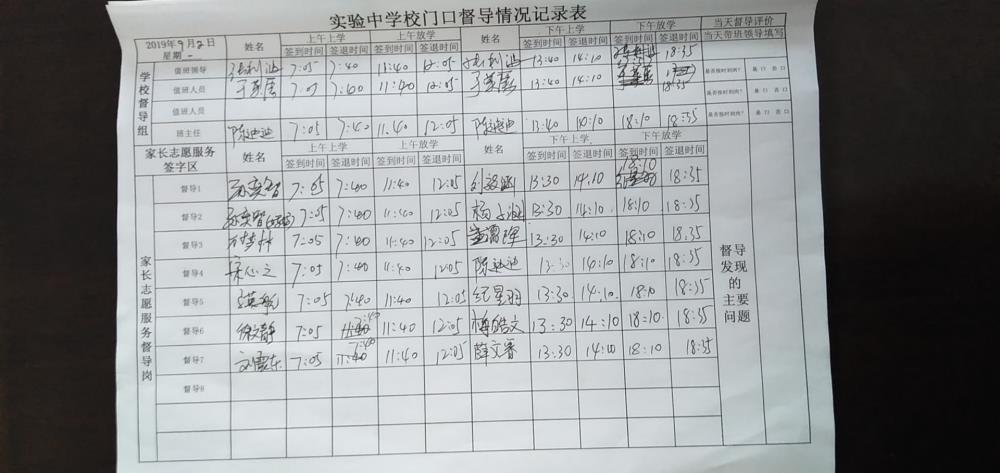 实验中学校门口督导情况记录表
2019年9月2日 星期一 姓名 上午上学 上午放学 姓名 下午上学 下午放学 当天督导评价
签到时间 签退时间 签到时间 签退时间 签到时间 签退时间 签到时间 签退时间 当天带班领导填写
学校督导组
值班领导 7:05 7:40 11:40 12:05 13:40 14:10 18:35
值班人员 7:05 7:40 11:40 12:05 13:40 14:10 18:35 是否按时到岗? 是口 否口
值班人员 是否按时到岗? 是口 否口
班主任 陈迪迪 7:05 7:40 11.40 12:05 陈迪迪 13:40 14:10 18:10 18:35 是否按时到岗? 是口 否口
家长志愿服务签字区 姓名 上午上学 上午放学 姓名 下午上学 下午放学
签到时间 签退时间 签到时间 签退时间 签到时间 签退时间 签到时间 签退时间
家长志愿服务督导岗
督导1 7:05 7:40 11:40 12:05 13:30 14:10 18:10 18:35
督导2 7:05 7:40 11:40 12:05 13:30 14:10 18:10 18:35
督导3 7:05 7:40 11:40 12:05 13:30 14:10 18:10 18.35
督导4 7:05 7:40 11:40 12:05 陈迪迪 13:30 14:10 18:10 18:35
督导5 7:05 7:40 11:40 12:05 纪星羽 13:30 14:10. 18:10 18:35
督导6 徐文静 7:05 7:40 11:40 12:05 梅皓文 13:30 14:10 18:10. 18:35
督导7 刘雷东 7:05 7:40 11:40 12:05 薛文睿 13:30 14:10 18:10 18:35
督导8
督导发现的主要问题